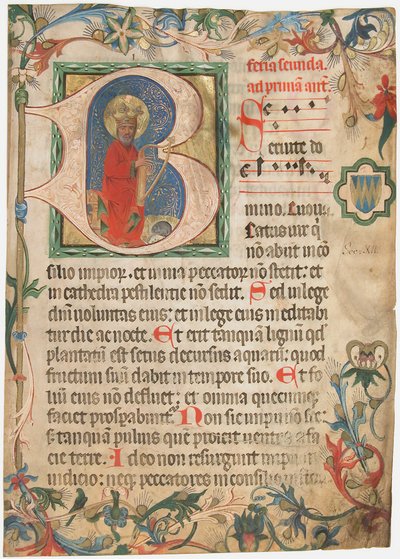 feria secunda.
ad primā ant̄.
Seruite do
mino. Euoua
Eatus uir q̄
nō abiit in cō
silio impior̄. et in uia peccator̄ nō stetit: et
in cathedra pestilentie nō sedit. Sed in lege
dn̄i uoluntas eius: et in lege eius meditabi
tur die ac nocte. Et erit tanquā lignū qd̄
plantatū est secus decursus aquarū: quod
fructum suū dabit in tempore suo. Et fo
liū eius nō defluet: et omnia quecumq;
faciet prosperabunt̄. Non sic impii nō sic:
s; tanquā puluis quē proicit uentus a fa
cie terre. Ideo non resurgunt impii in
iudicio: neq; peccatores in consilio